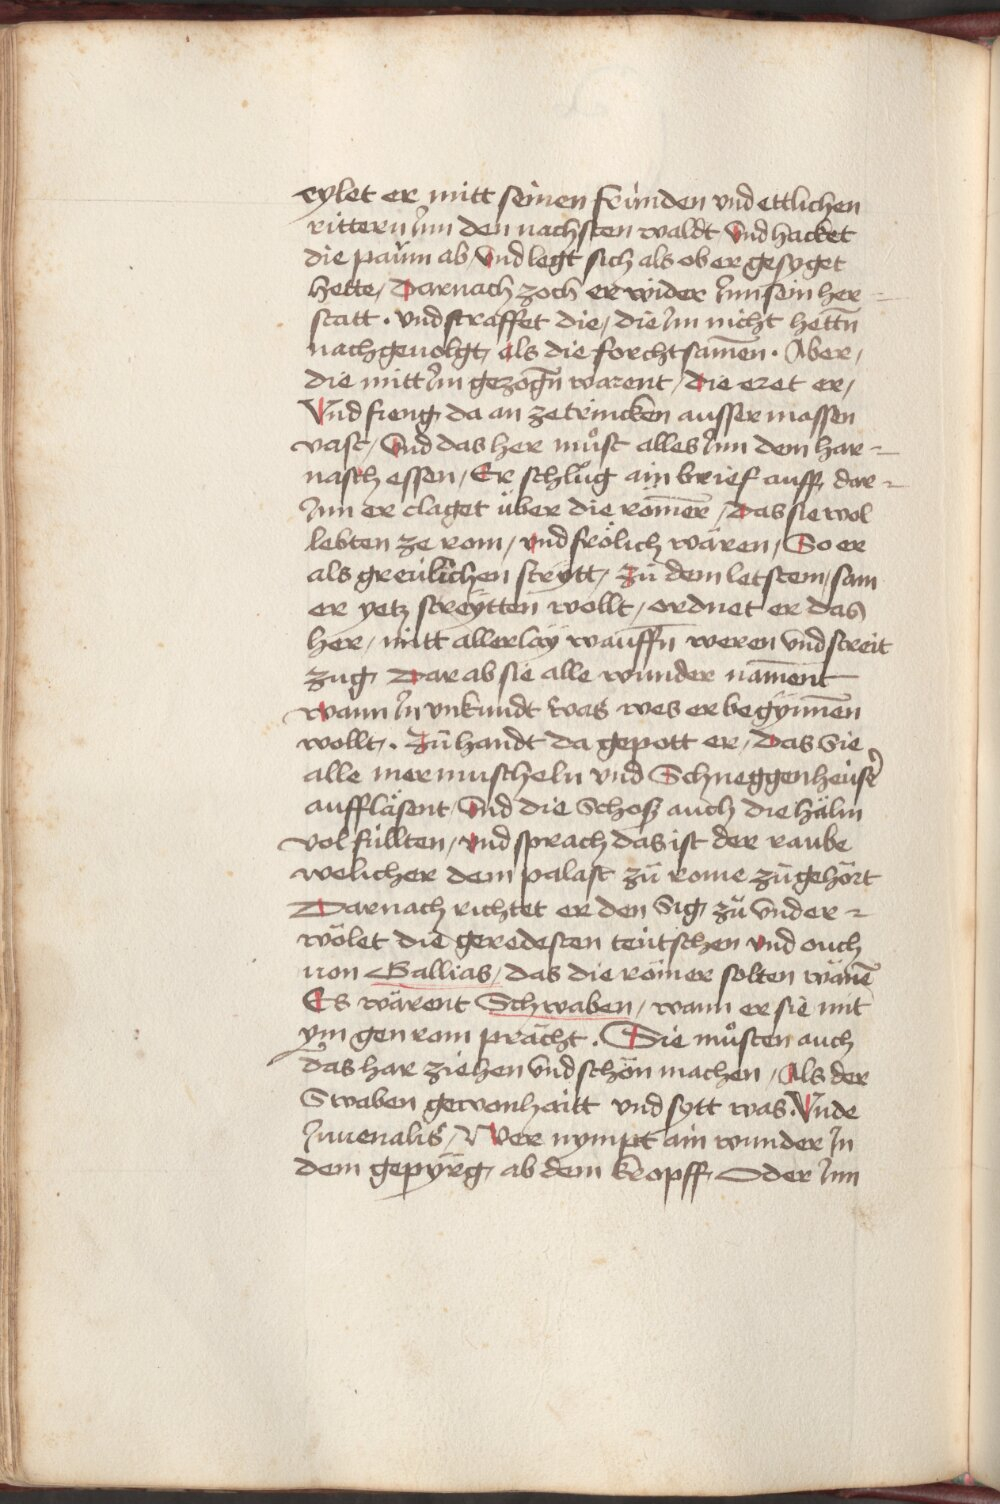 eylet er mitt seinen frúnden vnd ettlichen
rittern Inn den nachsten waldt Vnd hacket
die paům ab, Vnd legt sich als ob er gesyget
hette, Darnach zoch er wider Inn sein her=
statt . vnd straffet die, die Im nicht hettn̄
nachgeuolgt, als die forchtsamē̄n . Aber,
die mitt Im gezogn̄ warent, Die eret er,
Vnd fieng da an ze trincken ausser massen
vast, Vnd das her můst alles Inn dem har=
nasch essen, Er schlůg ain brief auff, dar=
Inn er claget über die romēr, Das sie wol
lebten ze rom, vnd frölich wären, So er
als greülichen strytt, Zů dem letstem, sam
er yetz streÿtten wollt, ordnet er das
her, mitt allerlaÿ wauffn̄ weren vnd streit
zug, Darab sie alle wunder namē̄nt
wann In vnkundt was wes er begÿnnē̄n
wollt, . Zů handt da gepott er, Das Sie
alle mermuscheln vnd Schneggenheüser
aufflåsent, Vnd die Schoß auch die hälm
vol füllten, vnd sprach das ist der raube
welicher dem palast zů rome zůgehört
Darnach richtet er den Sig, zů vnder=
wölet die geredesten teütschen vnd ouch
von Gallias, das die römer solten wänē
Es wärent Schwaben, wann er sie mit
ym gen rom prächt . Die můsten auch
das har ziehen vnd schön machen, Als der
Swaben gewonhaitt vnd sytt was . Vnde
Iuuenalis, Wer nympt ain wunder In
dem gepÿrg, ab dem kropff, Oder Inn